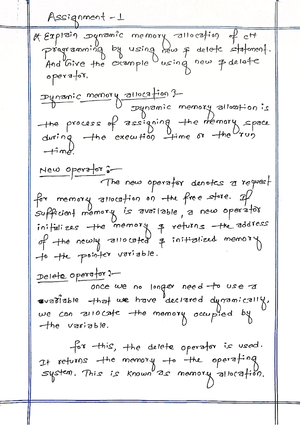 Assignment - 1
* Explain Dynamic memory allocation of c++
programming by using new & delete statment.
And Give the example using new & delete
operator.
Dynamic memory allocation :-
Dynamic memory allocation is
the process of assigning the memory space
during the execution time or the run
time.
New operator :-
The new operator denotes a request
for memory allocation on the free store. If
sufficient memory is available, a new operator
initilizes the memory & returns the address
of the newly allocated & initialized memory
to the pointer variable.
Delete operator :-
once we no longer need to use a
variable that we have declared dynamically,
we can allocate the memory occupied by
the variable.
for this, the delete operator is used.
It returns the memory to the operating
system. This is known as memory allocation.